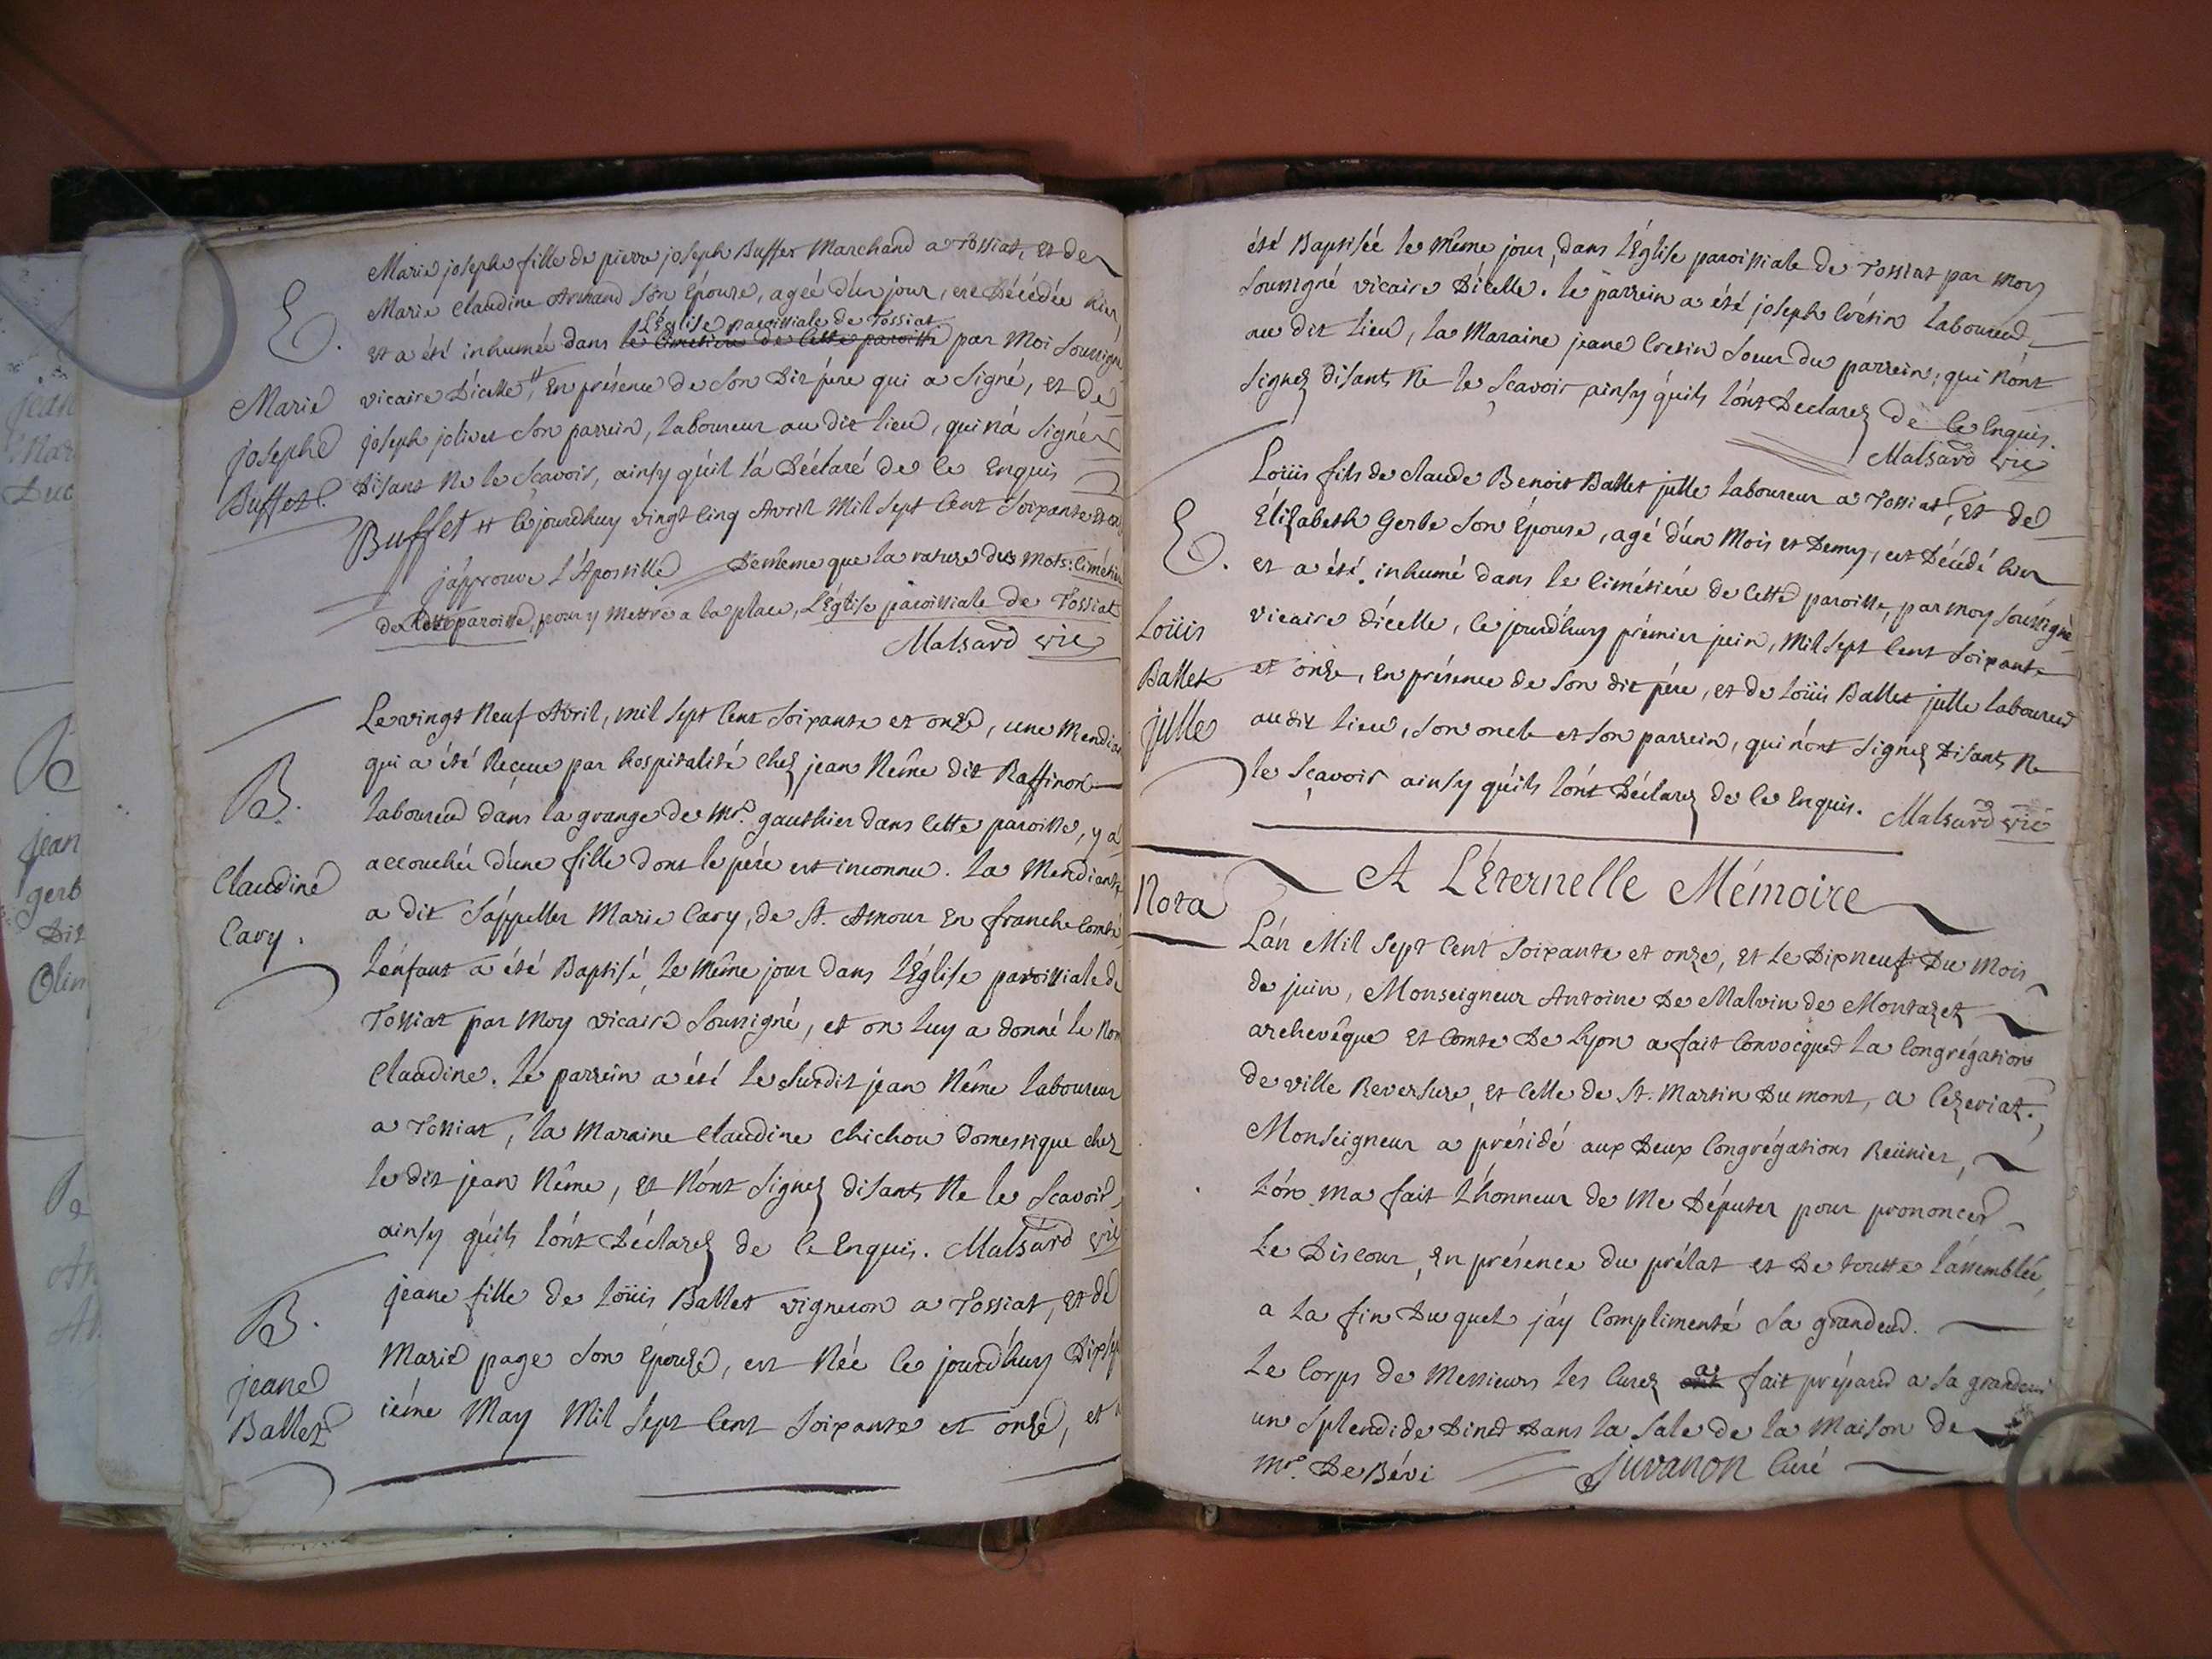 E.
Marie
josephe
Buffet.
Marie josephe fille de pierre joseph Buffet Marchand a Tossiat, et de
Marie Claudine Armand son Épouse, ageé d'un jour, est Décédée hier,
L'Église paroissiale de Tossiat
et a été inhumée dans le Cimetiere de Cette paroisse par Moi soussigné
vicaire D'icelle #, En présence de son Dit pére qui a signé, et de
joseph jolivet son parrein, laboureur au dit lieu, qui n'a signé
Disant Ne le sçavoir, ainsy qu'il l'a Déclaré de ce Enquis
Buffet # ce jourdhuy vingt cinq Avril Mil sept Cent soixante et on
j'approuve L'Apostille De même que la rature des mots: Cimétie
de Cette paroisse, pour y mettre a la place, L'Église paroissiale de Tossiat
Malsard vic
B.
Claudine
Cavy.
Le vingt Neuf Avril, mil sept Cent soixante et onze, une Mendian
qui a été Reçeue par hospitalité chez jean Nême dit Raffinon
laboureur dans la grange de Mr. gauthier dans Cette paroisse, y a
accouchée d'une fille dont le pére est inconnu. La Mendiante
a dit s'appeller Marie Cavy, de St. Amour En franche Comté
L'énfant a été Baptisé, le même jour dans l'Église paroissiale de
Tossiat par Moy vicaire soussigné, et on luy a donné le Nom
Claudine. Le parrein a été le susdit jean Nême laboureur
a Tossiat, la Maraine Claudine Chichou domestique chez
le dit jean Nême, et N'ont signez disants Ne le scavoir,
ainsy qu'ils l'ont Déclarez de Ce Enquis. Malsard vic
B.
jeane
Ballet
jeane fille de Loüis Ballet vigneron a Tossiat, et de
Marie page son Épouse, est Née ce jourd'huy Dixsept
iéme May Mil sept Cent soixante et onze, et
été Baptisée le même jour, dans l'Église paroissiale de Tossiat par moy
soussigné vicaire D'icelle. le parrein a été joseph Crétin laboureur
au dit lieu, la Maraine jeane Cretin soeur du parrein; qui n'ont
signez disants Ne le sçavoir ainsy qu'ils l'ont Declarez de Ce Enquis.
Malsard vic
E.
Loüis
Ballet
julle
Loüis fils de Claude Benoit Ballet julle laboureur a Tossiat, et de
Élizabeth Gerbe son Épouse, agé d'un Mois et Demy, est Décédé hier
et a été inhumé dans le Cimétiére de Cette paroisse, par moy soussigné
vicaire d'icelle, ce jourd'huy prémier juin, Mil sept Cent soixante
et onze, En présence de son dit pére, et de Loüis Ballet julle laboureur
au dit lieu, son oncle et son parrein, qui n'ont signez Disants Ne
le sçavoir ainsy qu'ils l'ont Déclarez de ce Enquis. Malsard vic
Nota
A L'Éternelle Mémoire
L'an Mil sept Cent soixante et onze, et le Dixneuf Du Mois
de juin, Monseigneur Antoine De Malvin de Montazet
archevêque Et Comte De Lyon a fait Convocquer La Congrégation
de ville Reversure, et Celle de St. Martin Du mont, a Cezeriat.
Monseigneur a présidé aux Deux Congrégations Reünies,
L'on m'a fait L'honneur de Me Députer pour prononcer
Le Discour, En présence du prélat et De toutte l'assemblée,
a La fin Du quel j'ay Complimenté sa grandeur.
Le Corps de Messieurs les Curez a fait préparer a sa grandeur
un splendide Diner Dans la sale de la Maison de
Mr. De Bévi Juvanon Curé